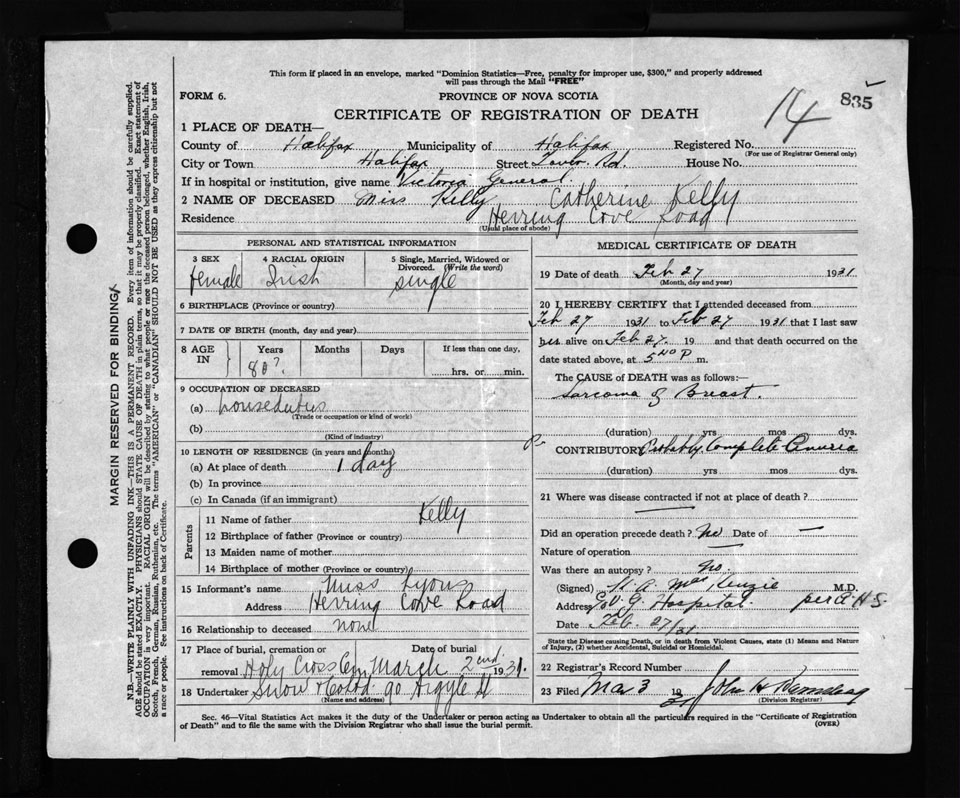 This form if placed in an envelope, marked "Dominion Statistics—Free, penalty for improper use, $300," and properly addressed
will pass through the Mail "FREE"
FORM 6.
PROVINCE OF NOVA SCOTIA
14
835
CERTIFICATE OF REGISTRATION OF DEATH
1 PLACE OF DEATH—
County of Halifax Municipality of Halifax Registered No.
(For use of Registrar General only)
City or Town Halifax Street Tower Rd. House No.
If in hospital or institution, give name Victoria General.
2 NAME OF DECEASED Miss Kelly Catherine Kelly
Residence Herring Cove Road
(Usual place of abode)
PERSONAL AND STATISTICAL INFORMATION
3 SEX 4 RACIAL ORIGIN 5 Single, Married, Widowed or
Divorced. (Write the word)
Female Irish single
6 BIRTHPLACE (Province or country)
7 DATE OF BIRTH (month, day and year)
8 AGE IN Years Months Days If less than one day,
80? hrs. or min.
9 OCCUPATION OF DECEASED
(a) houseduties
(Trade or occupation or kind of work)
(b)
(Kind of industry)
10 LENGTH OF RESIDENCE (in years and months)
(a) At place of death 1 day
(b) In province
(c) In Canada (if an immigrant)
Parents
11 Name of father Kelly
12 Birthplace of father (Province or country)
13 Maiden name of mother
14 Birthplace of mother (Province or country)
15 Informant's name Miss Lyons
Address Herring Cove Road
16 Relationship to deceased none
17 Place of burial, cremation or Date of burial
removal Holy Cross Cem March 2nd. 1931.
18 Undertaker Snow & Co Ltd 90 Argyle St
(Name and address)
MEDICAL CERTIFICATE OF DEATH
19 Date of death Feb 27 1931
(Month, day and year)
20 I HEREBY CERTIFY that I attended deceased from
Feb 27 1931 to Feb 27 1931 that I last saw
her alive on Feb 27. 19 and that death occurred on the
date stated above, at 5 40 P m.
The CAUSE OF DEATH was as follows:—
Sarcoma of Breast.
(duration) yrs mos dys.
CONTRIBUTORY Probably Complete Anuria
(duration) yrs mos dys.
21 Where was disease contracted if not at place of death?
Did an operation precede death? No Date of —
Nature of operation —
Was there an autopsy? No.
(Signed) H. A. MacKenzie M.D.
Address V. G. Hospital. per
Date Feb. 27/31
State the Disease causing Death, or in death from Violent Causes, state (1) Means and Nature
of Injury, (2) whether Accidental, Suicidal or Homicidal.
22 Registrar's Record Number
23 Filed Mar 3 19 31 John H
(Division Registrar)
Sec. 46—Vital Statistics Act makes it the duty of the Undertaker or person acting as Undertaker to obtain all the particulars required in the "Certificate of Registration
of Death" and to file the same with the Division Registrar who shall issue the burial permit.
(OVER)
MARGIN RESERVED FOR BINDING
N.B.—WRITE PLAINLY WITH UNFADING INK—THIS IS A PERMANENT RECORD. Every item of information should be carefully supplied.
AGE should be stated EXACTLY. PHYSICIANS should STATE CAUSE OF DEATH in plain terms, so that it may be properly classified. Exact statement of
OCCUPATION is very important. RACIAL ORIGIN will be described by stating to what people or race the deceased person belonged, whether English, Irish,
Scotch, French, German, Russian, Ruthenian, etc. The terms "AMERICAN" or "CANADIAN" SHOULD NOT BE USED as they express citizenship but not
a race or people. See instructions on back of Certificate.